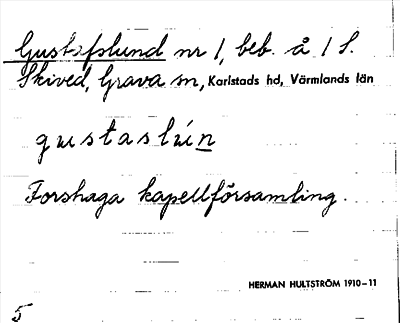 Gustafslund nr 1, beb. å 1 S.
Skived, Grava sn, Karlstads hd, Värmlands län
gustaslún
Forshaga kapellförsamling.
HERMAN HULTSTRÖM 1910-11
5